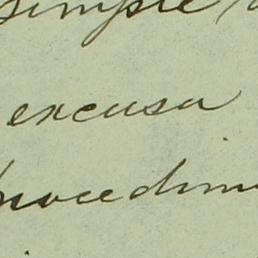 simple
excusa
procedim